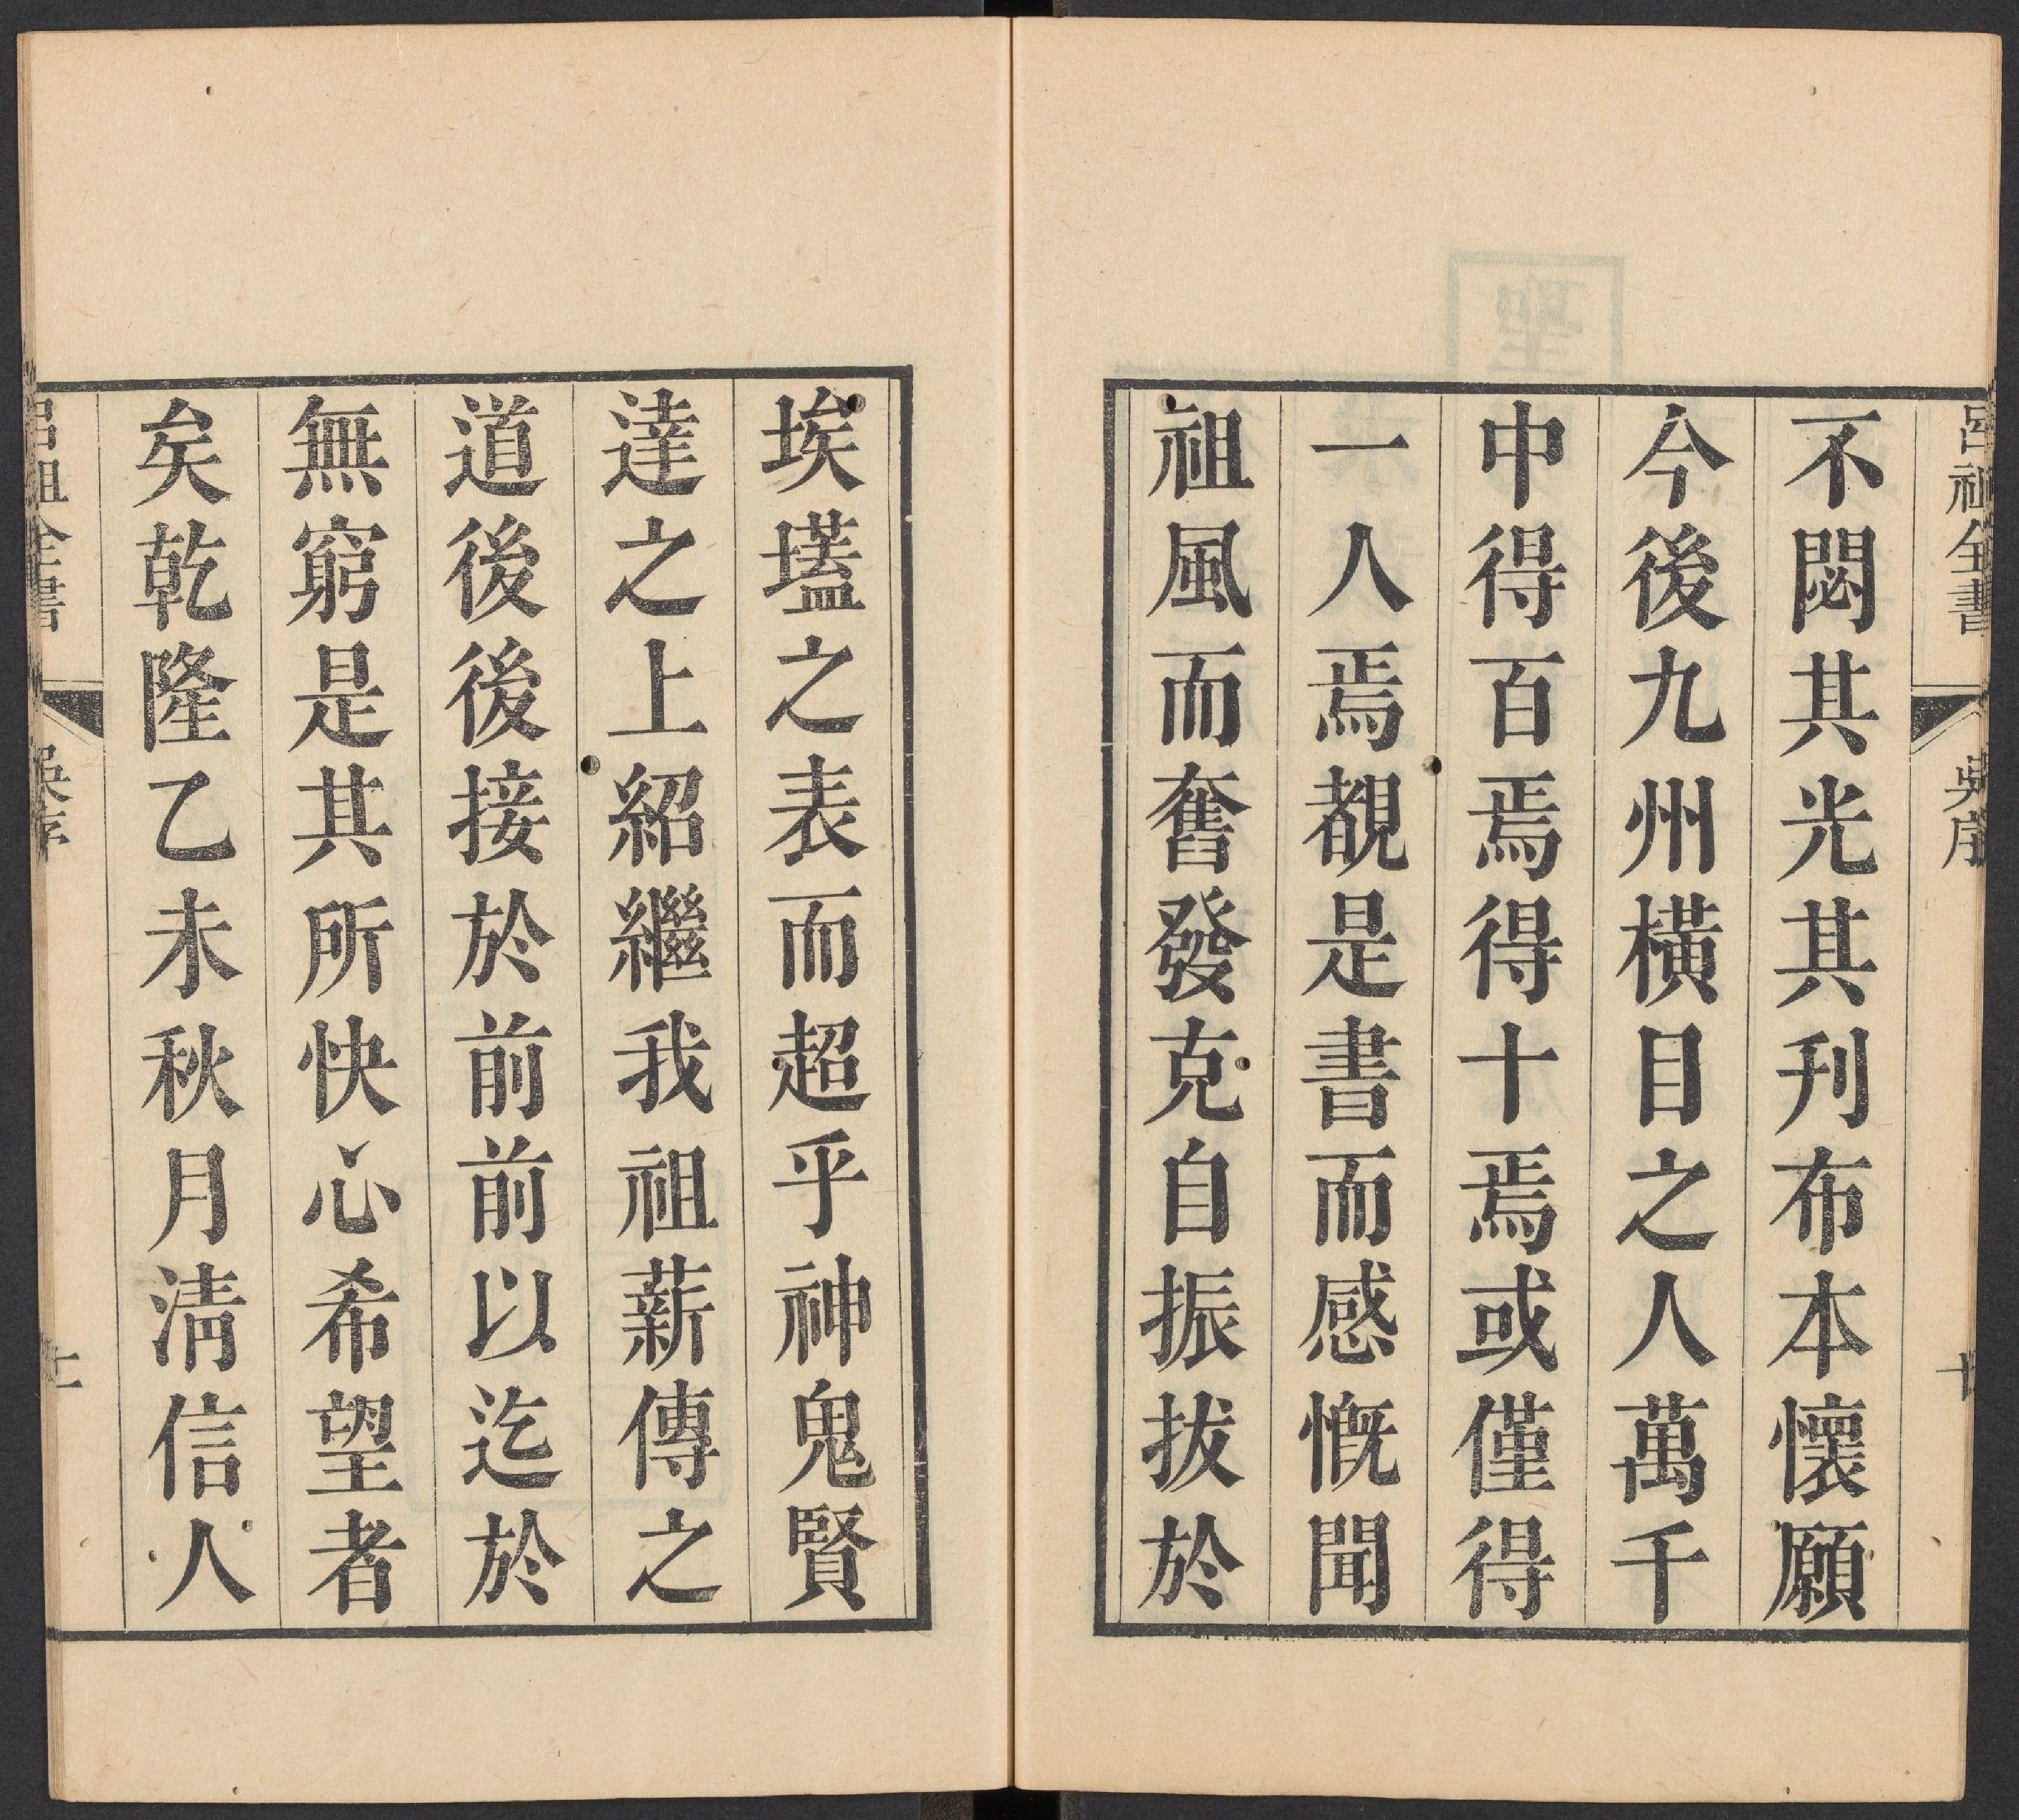 呂祖全書
吳序
十
不閟其光其刋布本懷願
今後九州橫目之人萬千
中得百焉得十焉或僅得
一人焉覩是書而感慨聞
祖風而奮發克自振拔於
埃壒之表而超乎神鬼賢
達之上紹繼我祖薪傳之
道後後接於前前以迄於
無窮是其所快心希望者
矣乾隆乙未秋月淸信人
呂祖全書
吳序
十一